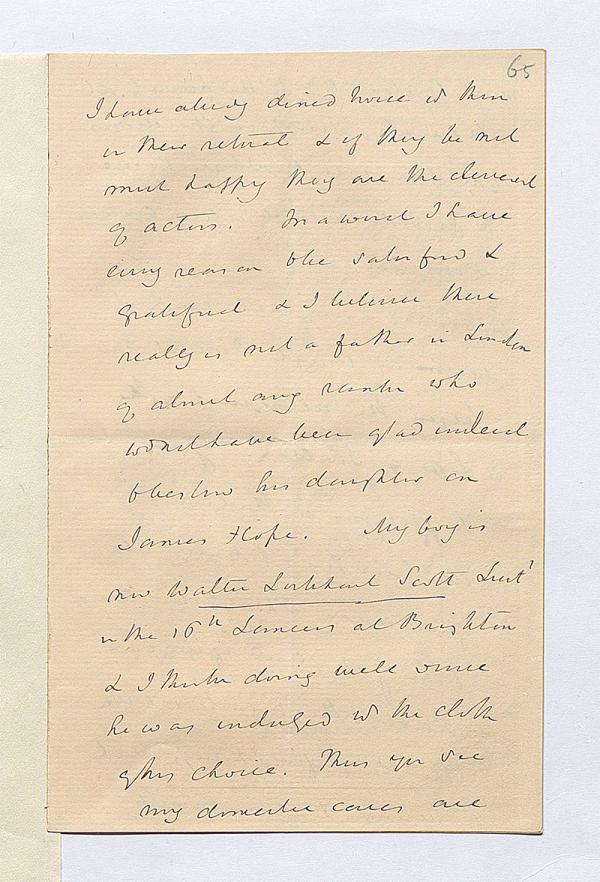 65
I have already dined twice w them
in their retreat & if they be not
most happy they are the cleverest
of actors. In a word I have
every reason to be satisfied &
gratified & I believe there
really is not a father in London
of almost any rank who
wd not have been glad indeed
to bestow his daughter on
James Hope. My boy is
now Walter Lockhart Scott Lieut
in the 16th Lancers at Brighton
& I think doing well since
he was indulged w the cloth
of his choice. Thus you see
my domestic cares are